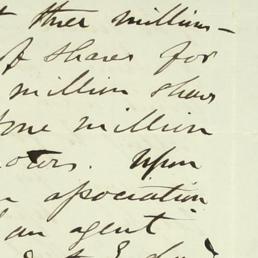 three millions
of shares for
million shares
one million
Upon
association
an agent